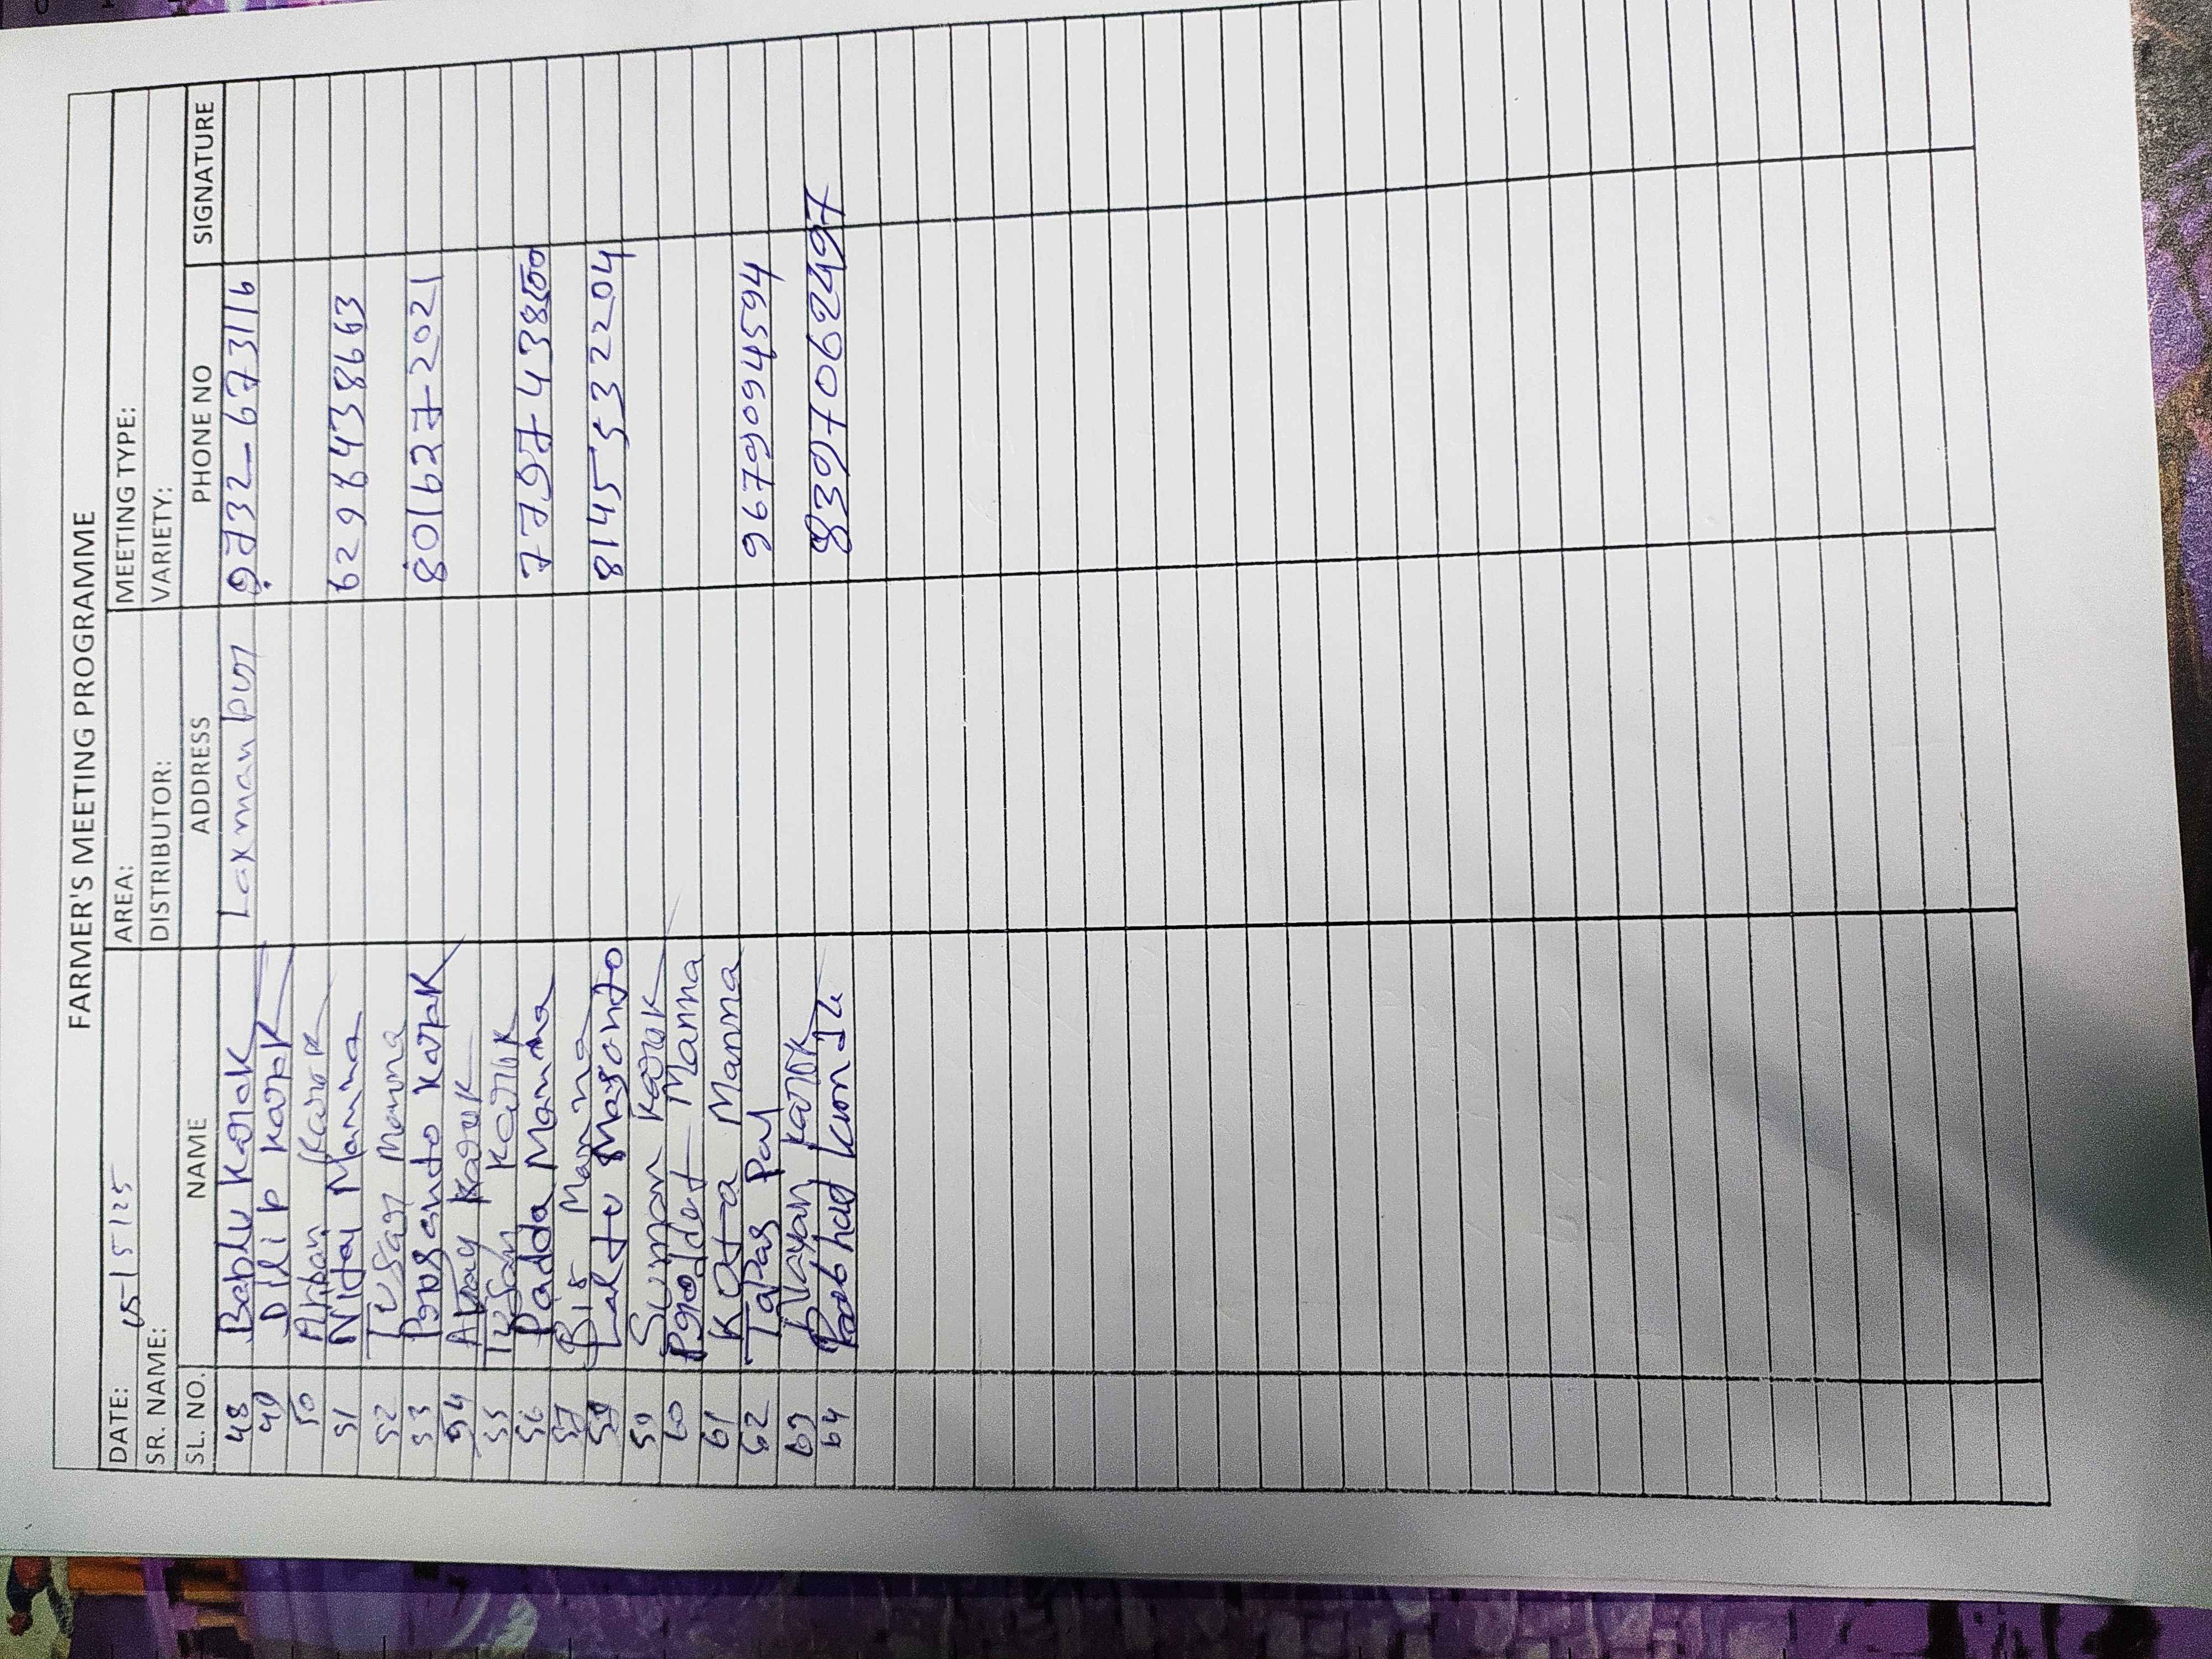 FARMER'S MEETING PROGRAMME
DATE: 15/5/25 AREA: MEETING TYPE:
SR. NAME: DISTRIBUTOR: VARIETY:
SL. NO. NAME ADDRESS PHONE NO SIGNATURE
48 Bablu Karak Laxmanpur 9732-673116
49 Dilip Karak
50 Arpan Karak
51 Nitay Manna 6298438663
52 Tusar Manna
53 Prosanto Karak 801627-2021
54 Abhay Karak
55 Tusar Karak
56 Padda Manna 7797-438500
57 Manna
58 Laltu 8145532204
59 Suman Karak
60 Manna
61 Manna
62 Tapas Pal 9679094594
63 Nayan Karak
64 8397062497